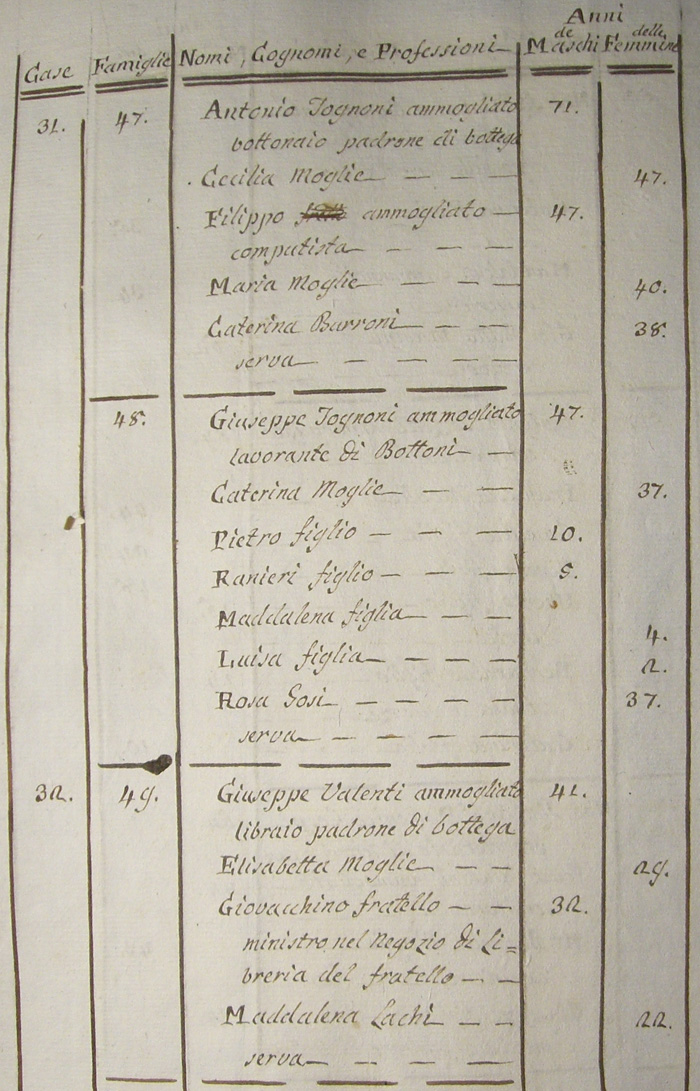 Anni
Case Famiglie Nomi, Cognomi, e Professioni de Maschi delle Femmine
31. 47. Antonio Tognoni ammogliato 71.
bottonaio padrone di bottega
Cecilia Moglie 47.
Filippo ammogliato 47.
computista
Maria Moglie 40.
Caterina Burroni 38.
serva
48. Giuseppe Tognoni ammogliato 47.
lavorante di Bottoni
Caterina Moglie 37.
Pietro figlio 10.
Ranieri figlio 5.
Maddalena figlia 4.
Luisa figlia 2.
Rosa Gosi 37.
serva
32. 49. Giuseppe Valenti ammogliato 41.
libraio padrone di bottega
Elisabetta Moglie 29.
Giovacchino fratello 32.
ministro nel Negozio di Li=
breria del fratello
Maddalena Lachi 22.
serva